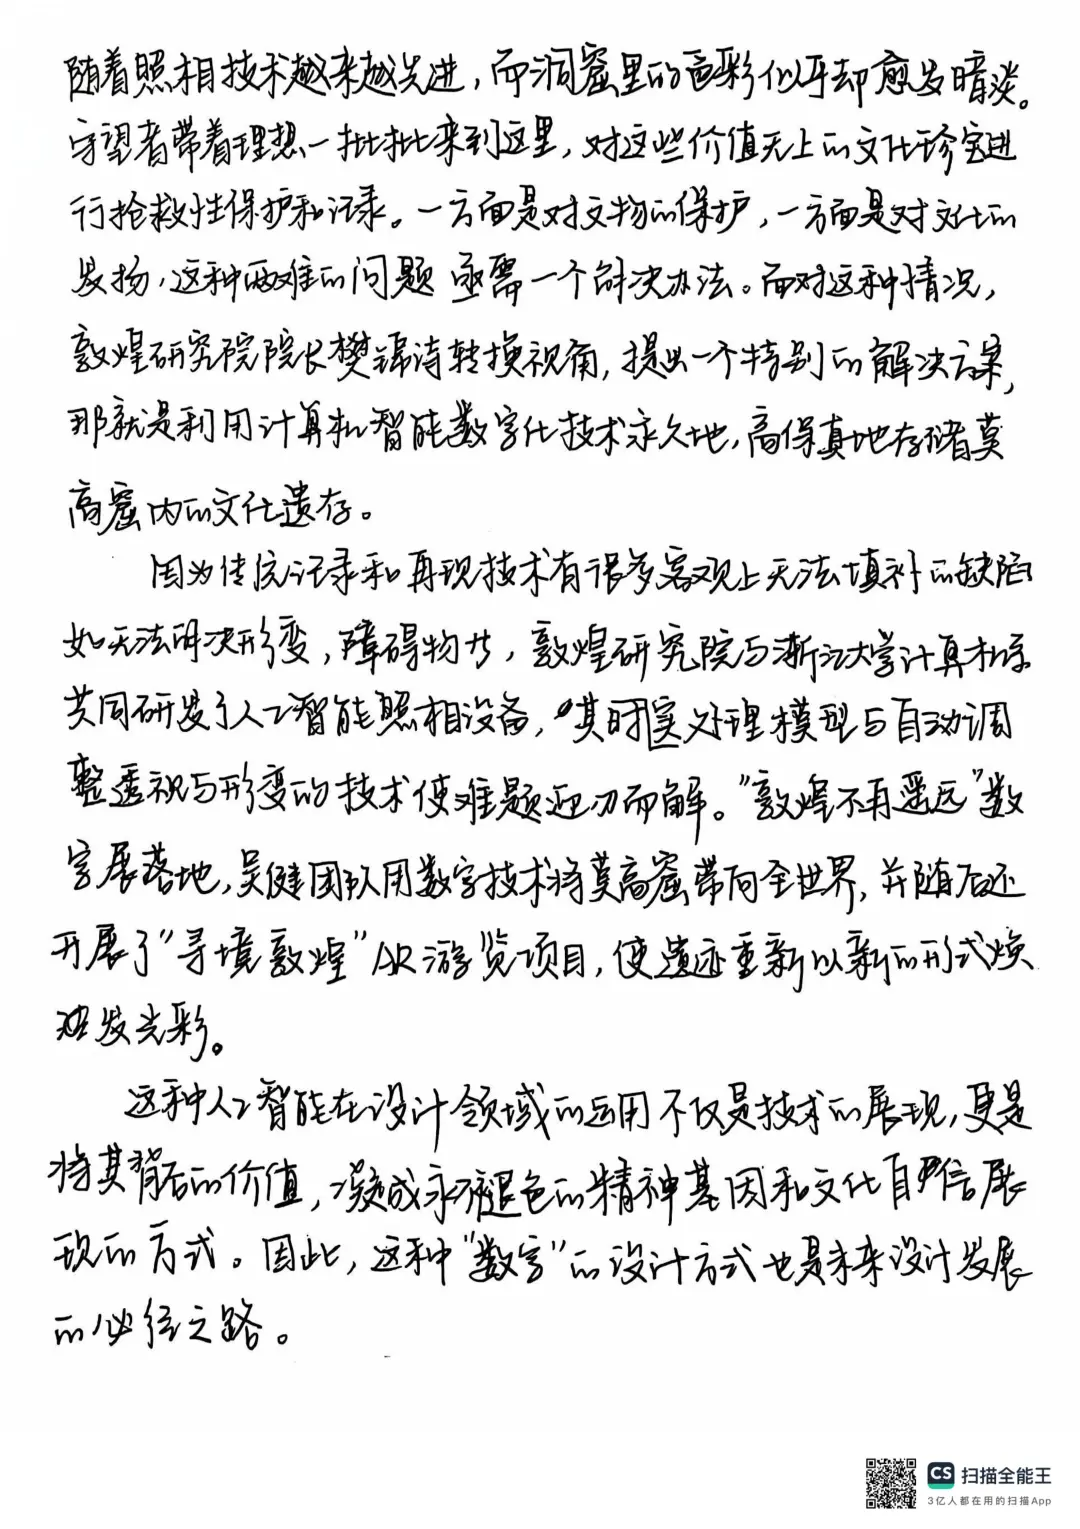 随着照相技术越来越先进，而洞窟里的色彩似乎却愈发暗淡。
守望者带着理想一批批来到这里，对这些价值无上的文化珍宝进
行抢救性保护和记录。一方面是对文物的保护，一方面是对文化的
发扬，这种两难的问题亟需一个解决办法。面对这种情况，
敦煌研究院院长樊锦诗转换视角，提出一个特别的解决方案，
那就是利用计算机智能数字化技术永久地，高保真地存储莫
高窟内的文化遗存。
因为传统记录和再现技术有很多客观上无法填补的缺陷
如无法解决形变，障碍物等，敦煌研究院与浙江大学计算机系
共同研发了人工智能照相设备，其时实处理模型与自动调
整透视与形变的技术使难题迎刃而解。“敦煌不再遥远”数
字展落地，吴健团队用数字技术将莫高窟带向全世界，并随后还
开展了“寻境敦煌”AR游览项目，使遗迹重新以新的形式焕
发光彩。
这种人工智能在设计领域的运用不仅是技术的展现，更是
将其背后的价值，凝成永不褪色的精神基因和文化自信展
现的方式。因此，这种“数字”的设计方式也是未来设计发展
的必经之路。
CS 扫描全能王
3亿人都在用的扫描App